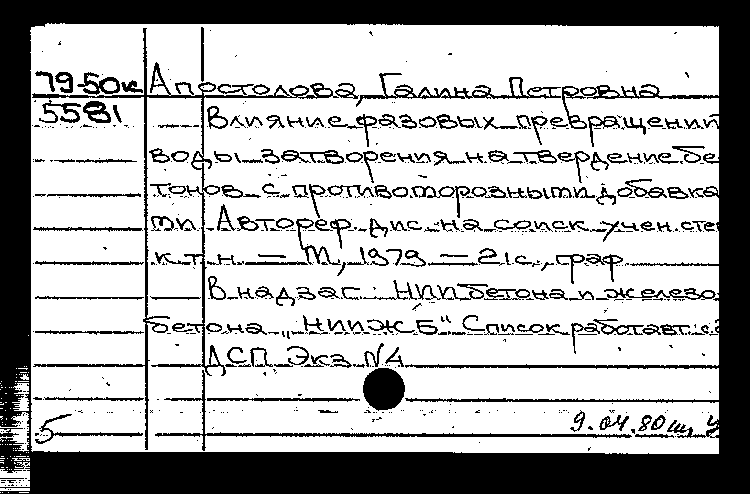 79-50к Апостолова, Галина Петровна
5581 Влияние фазовых превращений
воды затворения на твердение бе
тонов с противоморозными добавка
ми Автореф. дис. на соиск учен. сте
к.т.н. — М, 1979 — 21с., граф
В надзаг: НИИ бетона и железо
бетона „НИИЖБ" Список работ авт.: с
ДСП Экз N4
5 9.04.80